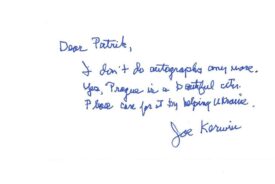 Dear Patrik,
I don't do autographs any more.
Yes, Prague is a beautiful city.
Please care for it by helping Ukraine.
Joe Kerwin